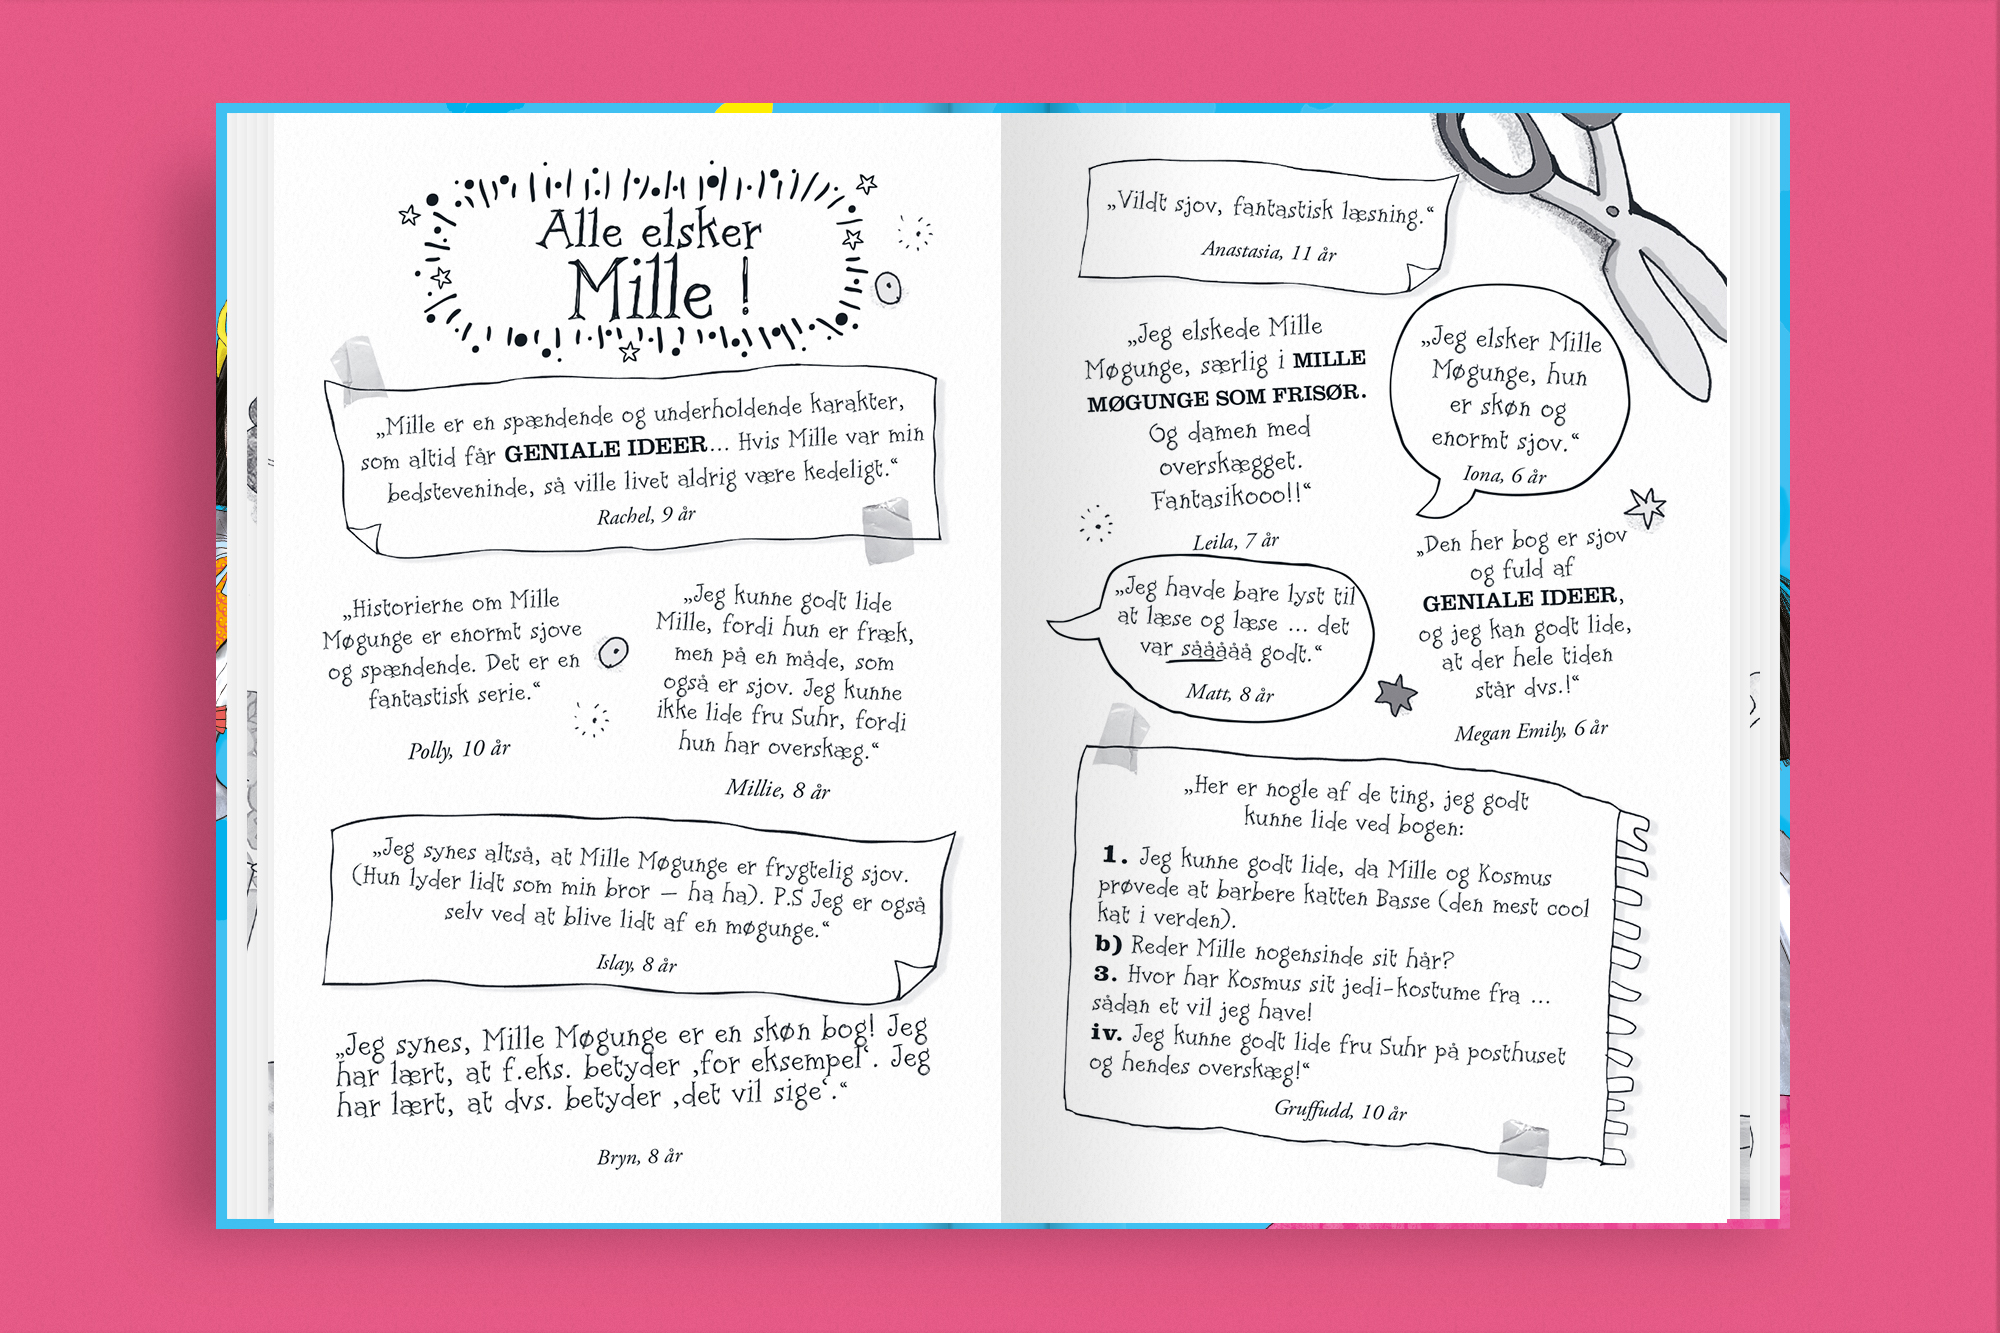 Alle elsker
Mille !
„Mille er en spændende og underholdende karakter,
som altid får GENIALE IDEER... Hvis Mille var min
bedsteveninde, så ville livet aldrig være kedeligt.“
Rachel, 9 år
„Historierne om Mille
Møgunge er enormt sjove
og spændende. Det er en
fantastisk serie.“
Polly, 10 år
„Jeg kunne godt lide
Mille, fordi hun er fræk,
men på en måde, som
også er sjov. Jeg kunne
ikke lide fru Suhr, fordi
hun har overskæg.“
Millie, 8 år
„Jeg synes altså, at Mille Møgunge er frygtelig sjov.
(Hun lyder lidt som min bror – ha ha). P.S Jeg er også
selv ved at blive lidt af en møgunge.“
Islay, 8 år
„Jeg synes, Mille Møgunge er en skøn bog! Jeg
har lært, at f.eks. betyder ‚for eksempel‘. Jeg
har lært, at dvs. betyder ‚det vil sige‘.“
Bryn, 8 år
„Vildt sjov, fantastisk læsning.“
Anastasia, 11 år
„Jeg elskede Mille
Møgunge, særlig i MILLE
MØGUNGE SOM FRISØR.
Og damen med
overskægget.
Fantasikooo!!“
Leila, 7 år
„Jeg elsker Mille
Møgunge, hun
er skøn og
enormt sjov.“
Iona, 6 år
„Jeg havde bare lyst til
at læse og læse ... det
var sååååå godt.“
Matt, 8 år
„Den her bog er sjov
og fuld af
GENIALE IDEER,
og jeg kan godt lide,
at der hele tiden
står dvs.!“
Megan Emily, 6 år
„Her er nogle af de ting, jeg godt
kunne lide ved bogen:
1. Jeg kunne godt lide, da Mille og Kosmus
prøvede at barbere katten Basse (den mest cool
kat i verden).
b) Reder Mille nogensinde sit hår?
3. Hvor har Kosmus sit jedi-kostume fra ...
sådan et vil jeg have!
iv. Jeg kunne godt lide fru Suhr på posthuset
og hendes overskæg!“
Gruffudd, 10 år